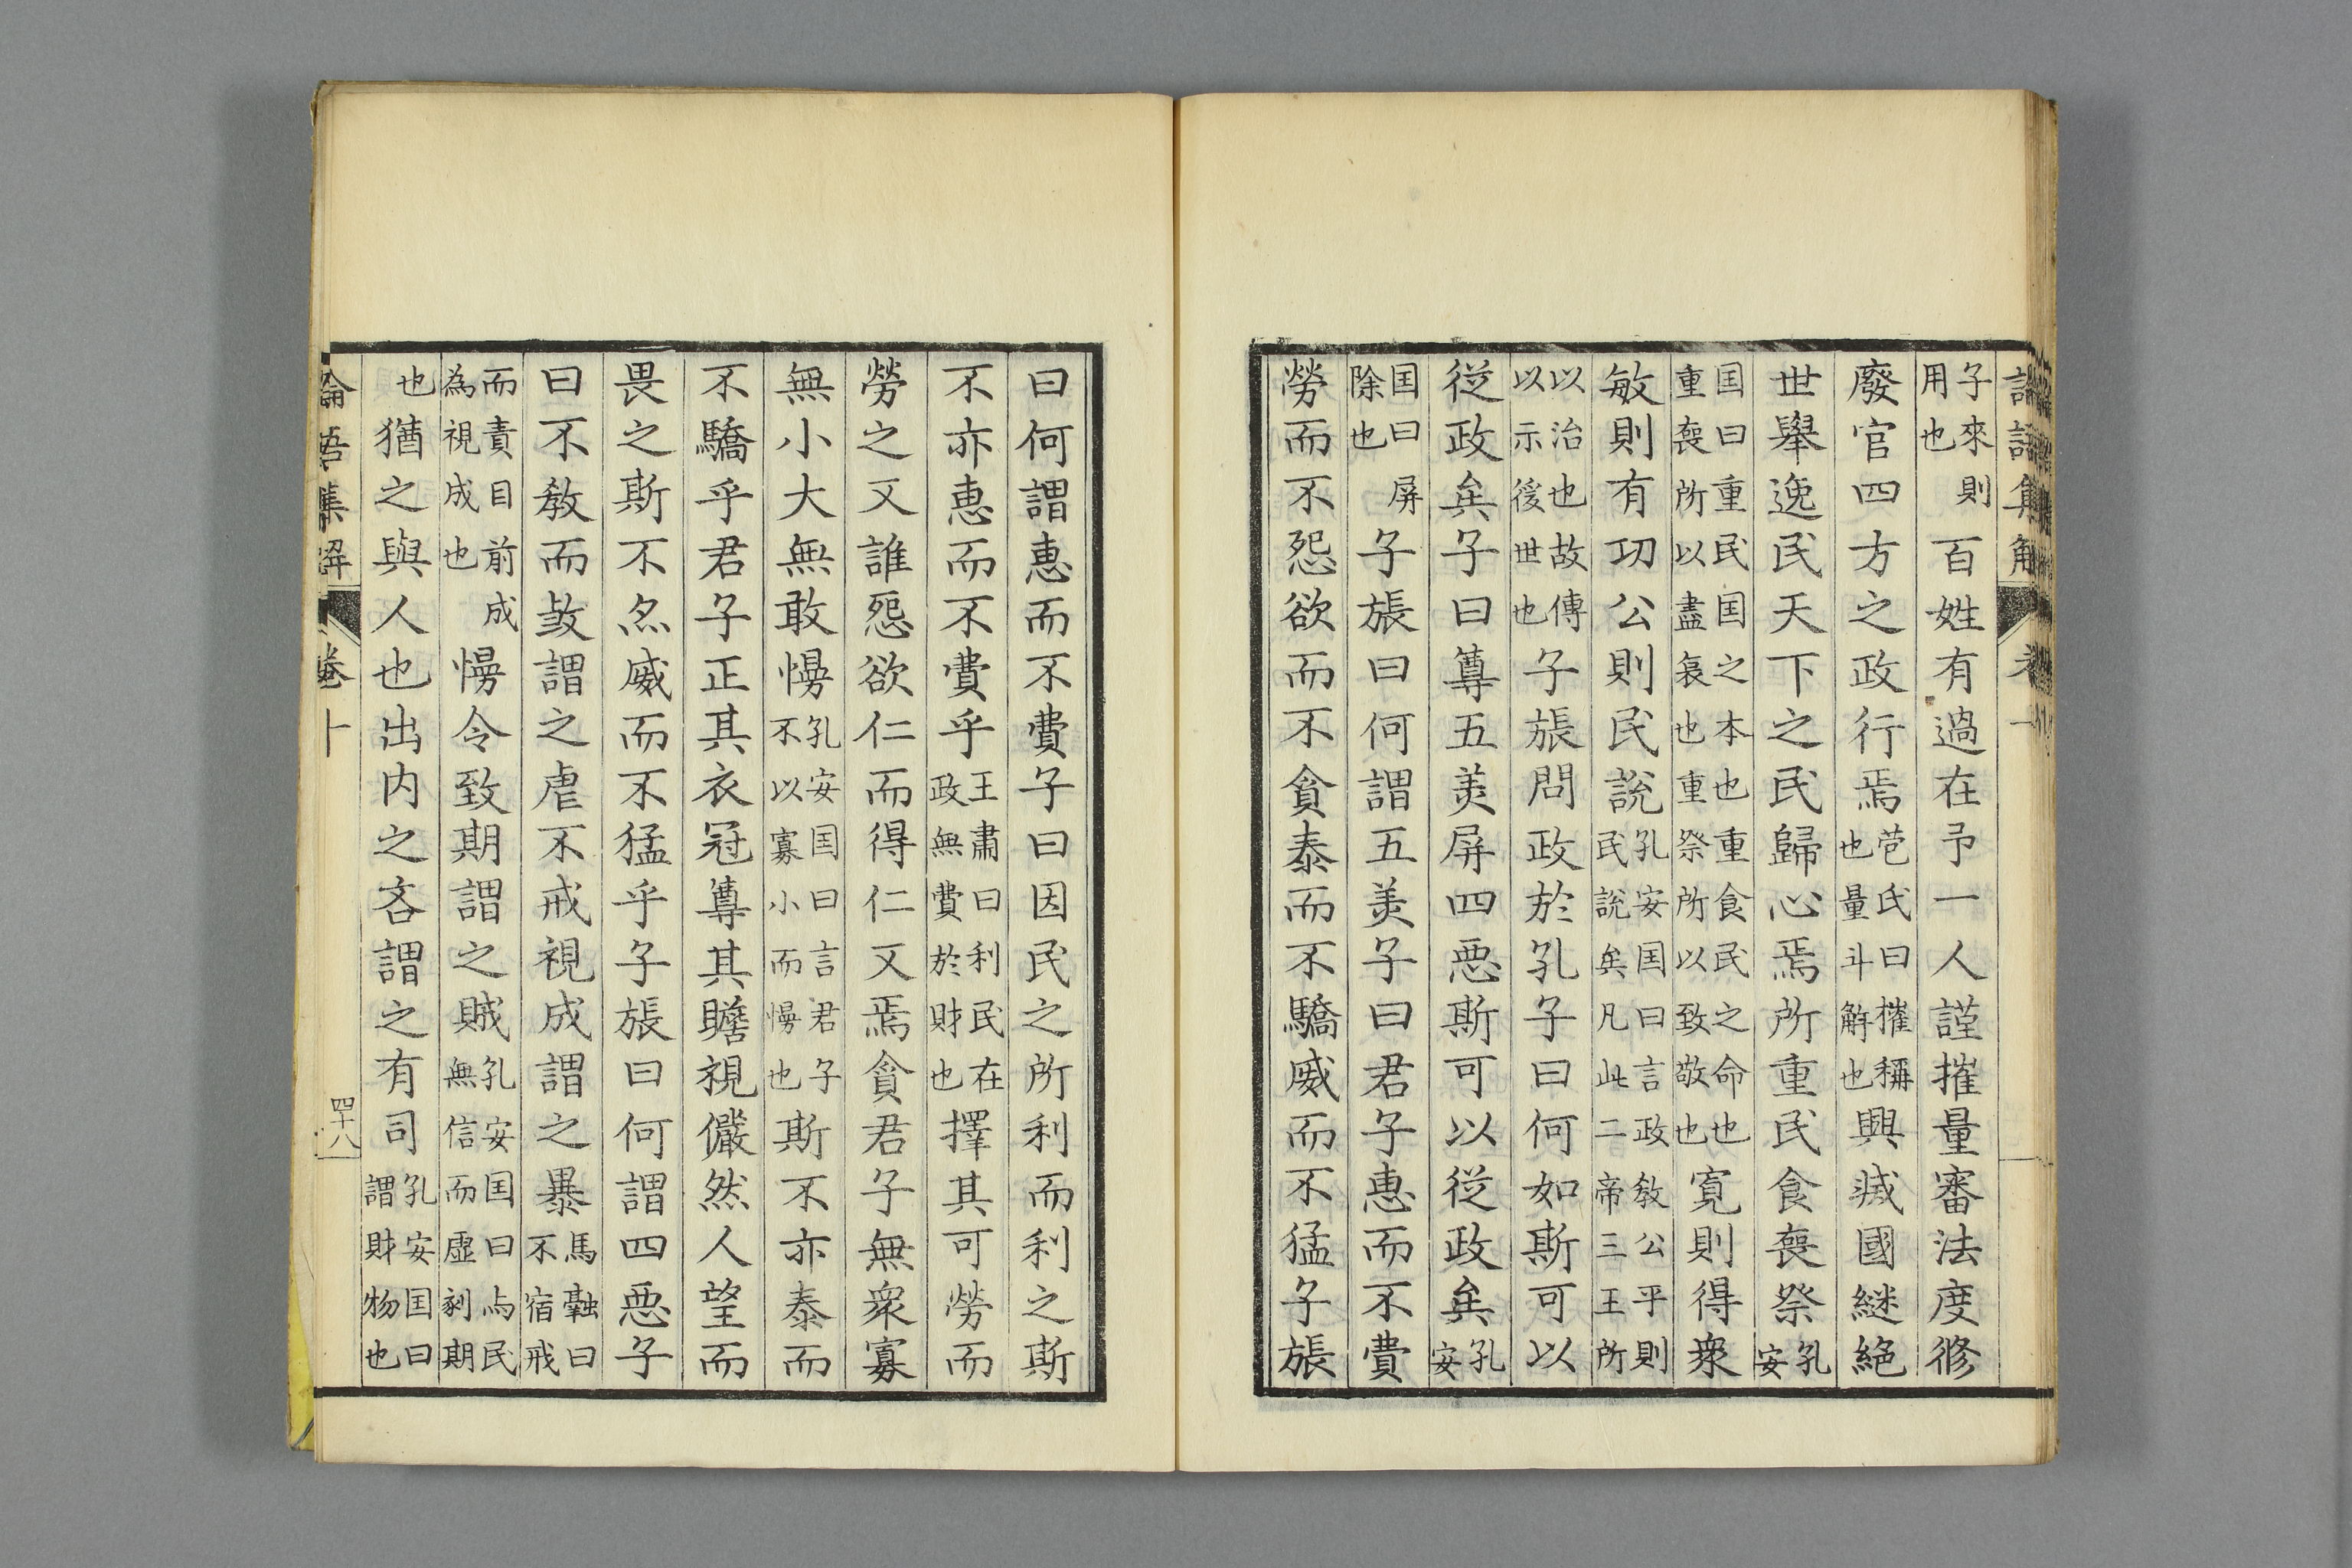 論語集解　卷十
子來則用也百姓有過在予一人謹摧量審法度修
廢官四方之政行焉苞氏曰摧稱也量斗觧也興滅國継絶
世舉逸民天下之民歸心焉所重民食喪祭孔安
囯曰重民囯之本也重食民之命也重喪所以盡哀也重祭所以致敬也寛則得衆
敏則有功公則民說孔安囯曰言政教公平則民說矣凡此二帝三王所
以治也故傳以示後世也子張問政於孔子曰何如斯可以
從政矣子曰尊五美屏四惡斯可以從政矣孔安
囯曰屏除也子張曰何謂五美子曰君子惠而不費
勞而不怨欲而不貪泰而不驕威而不猛子張
曰何謂惠而不費子曰因民之所利而利之斯
不亦惠而不費乎王肅曰利民在政無費於財也擇其可勞而
勞之又誰怨欲仁而得仁又焉貪君子無衆寡
無小大無敢慢孔安囯曰言君子不以寡小而慢也斯不亦泰而
不驕乎君子正其衣冠尊其瞻視儼然人望而
畏之斯不亦威而不猛乎子張曰何謂四惡子
曰不教而敎謂之虐不戒視成謂之暴馬融曰不宿戒
而責目前成為視成也慢令致期謂之賊孔安囯曰与民無信而虛刻期
也猶之與人也出内之吝謂之有司孔安囯曰謂財物也
論語集解　卷十　四十八